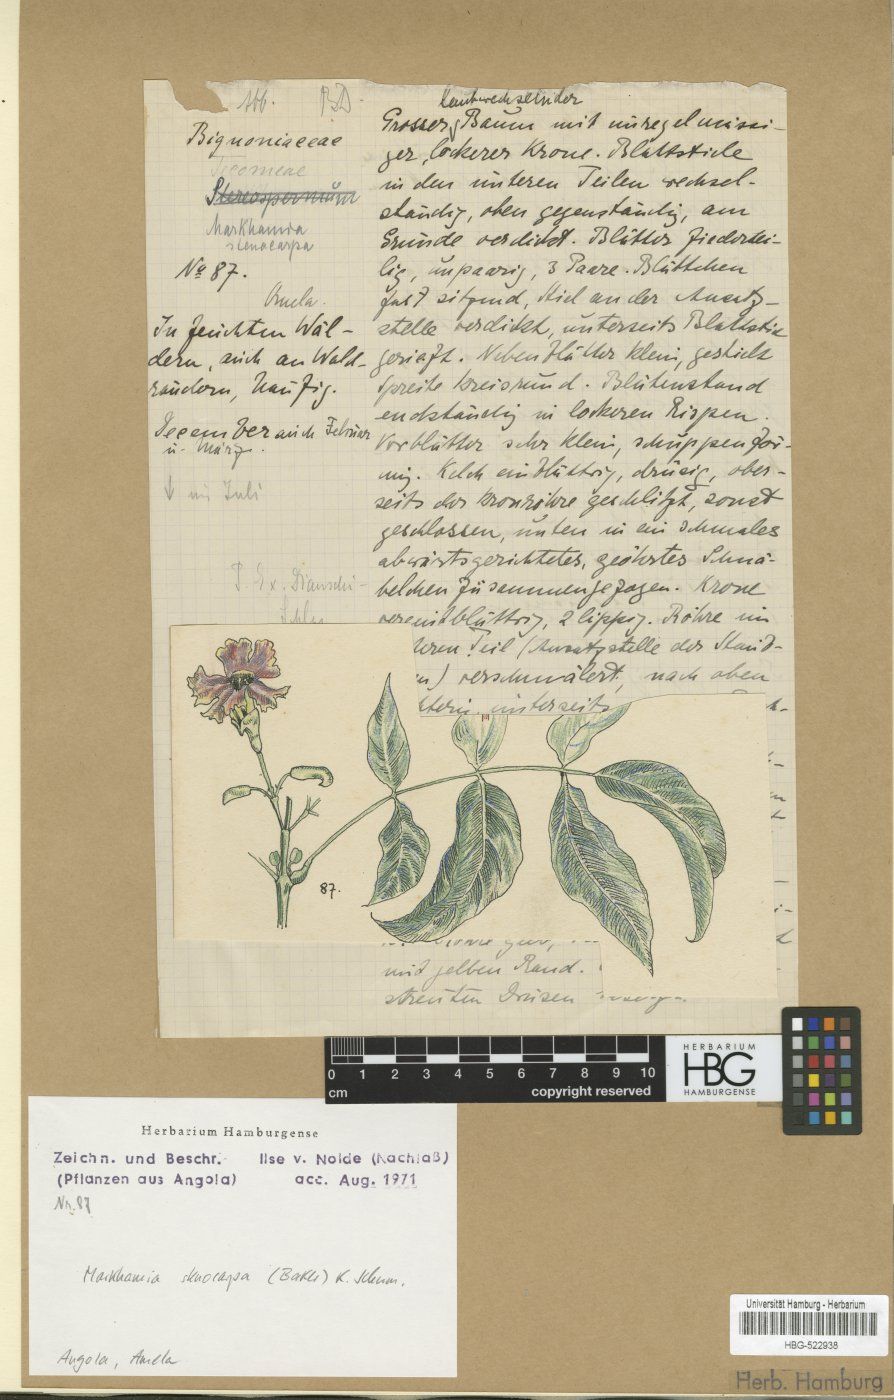 Abb. BD.
Bignoniaceae
Tecomeae
Stereospermum
Markhamia
stenocarpa
№ 87.
Amela.
In feuchten Wäl-
dern, auch an Wald-
rändern, häufig.
Dezember auch Februar
u. März.
↓ im Juli
laubwechselnder
Grosser Baum mit unregelmässi-
ger, lockerer Krone. Blattstiele
in den unteren Teilen wechsel-
ständig, oben gegenständig, am
Grunde verdickt. Blätter fiedertei-
lig, unpaarig, 3 Paare. Blättchen
fast sitzend, Stiel an der Ansatz-
stelle verdickt, unterseits Blattstiel
gerieft. Nebenblätter klein, gestielt
Spreite kreisrund. Blütenstand
endständig in lockeren Rispen.
Vorblätter sehr klein, schuppenför-
mig. Kelch einblättrig, drüsig, ober-
seits der Kronröhre geschlitzt, sonst
geschlossen, unten in ein schmales
abwärtsgerichtetes, geöhrtes Schnä-
belchen zusammengezogen. Krone
vereintblättrig, 2 lippig. Röhre im
Teil (Ansatzstelle der Staub-
) verschmälert, nach oben
unterseits
87.
mit gelben Rand.
streuten Drüsen
0 1 2 3 4 5 6 7 8 9 10
cm copyright reserved
HERBARIUM
HBG
HAMBURGENSE
Herbarium Hamburgense
Zeichn. und Beschr. Ilse v. Nolde (Nachlaß)
(Pflanzen aus Angola) acc. Aug. 1971
Nr. 87
Markhamia stenocarpa (Baker) K. Schum.
Angola, Amela
Universität Hamburg - Herbarium
HBG-522938
Herb. Hamburg